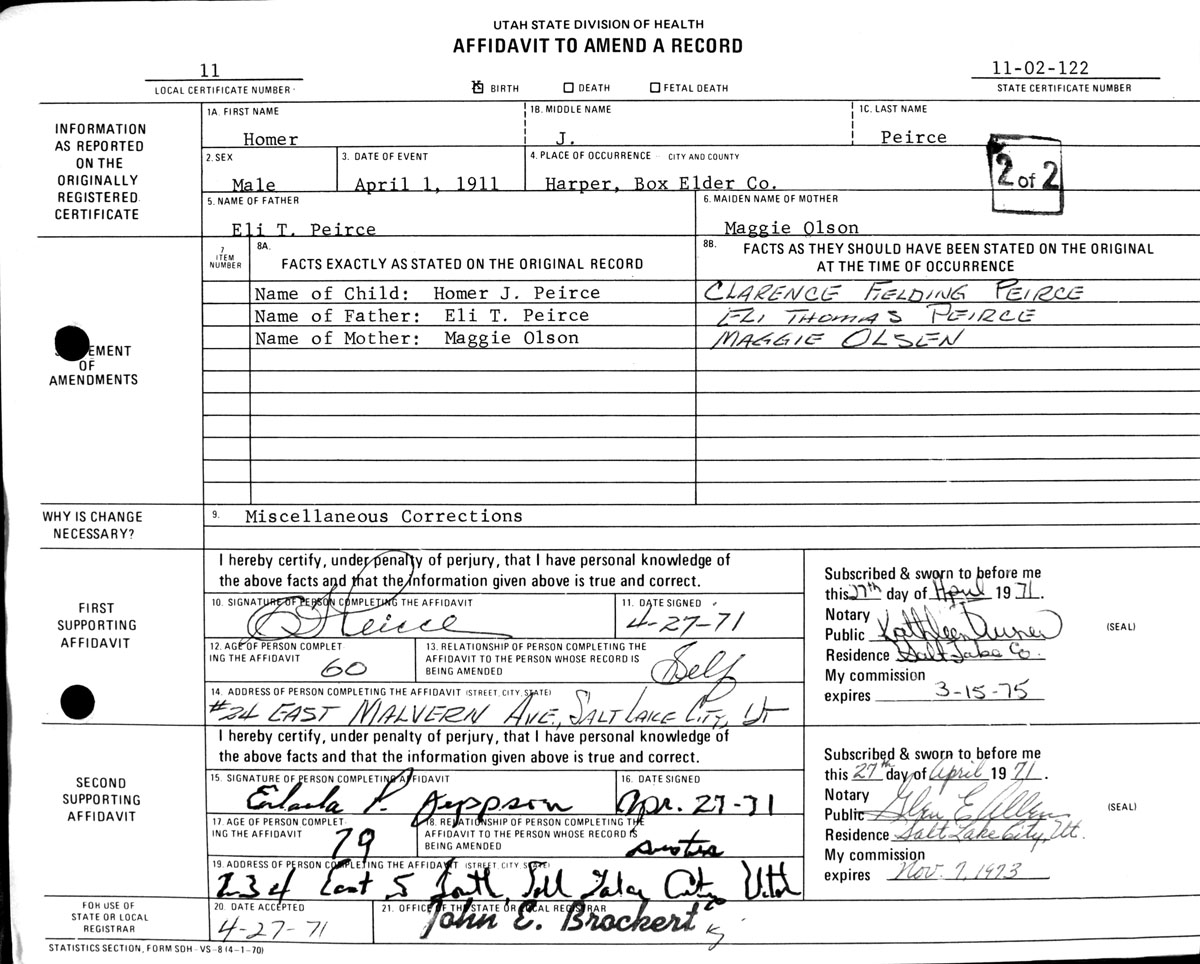 UTAH STATE DIVISION OF HEALTH
AFFIDAVIT TO AMEND A RECORD
11
LOCAL CERTIFICATE NUMBER
BIRTH DEATH FETAL DEATH
11-02-122
STATE CERTIFICATE NUMBER
INFORMATION
AS REPORTED
ON THE
ORIGINALLY
REGISTERED
CERTIFICATE
1A. FIRST NAME 1B. MIDDLE NAME 1C. LAST NAME
Homer J. Peirce
2. SEX 3. DATE OF EVENT 4. PLACE OF OCCURRENCE - CITY AND COUNTY
Male April 1, 1911 Harper, Box Elder Co.
2 of 2
5. NAME OF FATHER 6. MAIDEN NAME OF MOTHER
Eli T. Peirce Maggie Olson
OF
AMENDMENTS
7
ITEM
NUMBER
8A.
FACTS EXACTLY AS STATED ON THE ORIGINAL RECORD
8B. FACTS AS THEY SHOULD HAVE BEEN STATED ON THE ORIGINAL
AT THE TIME OF OCCURRENCE
Name of Child: Homer J. Peirce CLARENCE FIELDING PEIRCE
Name of Father: Eli T. Peirce ELI THOMAS PEIRCE
Name of Mother: Maggie Olson MAGGIE OLSEN
WHY IS CHANGE
NECESSARY?
9. Miscellaneous Corrections
FIRST
SUPPORTING
AFFIDAVIT
I hereby certify, under penalty of perjury, that I have personal knowledge of
the above facts and that the information given above is true and correct.
10. SIGNATURE OF PERSON COMPLETING THE AFFIDAVIT 11. DATE SIGNED
Peirce 4-27-71
12. AGE OF PERSON COMPLET-
ING THE AFFIDAVIT 60
13. RELATIONSHIP OF PERSON COMPLETING THE
AFFIDAVIT TO THE PERSON WHOSE RECORD IS
BEING AMENDED Self
14. ADDRESS OF PERSON COMPLETING THE AFFIDAVIT (STREET, CITY, STATE)
#34 EAST MALVERN AVE., SALT LAKE CITY, UT
Subscribed & sworn to before me
this 27th day of April 1971.
Notary
Public Kathleen
Residence Salt Lake Co.
My commission
expires 3-15-75
(SEAL)
SECOND
SUPPORTING
AFFIDAVIT
I hereby certify, under penalty of perjury, that I have personal knowledge of
the above facts and that the information given above is true and correct.
15. SIGNATURE OF PERSON COMPLETING AFFIDAVIT 16. DATE SIGNED
P. Jeppson Apr. 27-71
17. AGE OF PERSON COMPLET-
ING THE AFFIDAVIT 79
18. RELATIONSHIP OF PERSON COMPLETING THE
AFFIDAVIT TO THE PERSON WHOSE RECORD IS
BEING AMENDED
19. ADDRESS OF PERSON COMPLETING THE AFFIDAVIT (STREET, CITY, STATE)
234 East 5 South City Utah
Subscribed & sworn to before me
this 27th day of April 1971.
Notary
Public Glen E Allen
Residence Salt Lake City, Ut.
My commission
expires Nov. 7, 1973
(SEAL)
FOR USE OF
STATE OR LOCAL
REGISTRAR
20. DATE ACCEPTED
4-27-71
21. OFFICE OF THE STATE OR LOCAL REGISTRAR
John E. Brockert
STATISTICS SECTION, FORM SDH - VS - 8 (4-1-70)